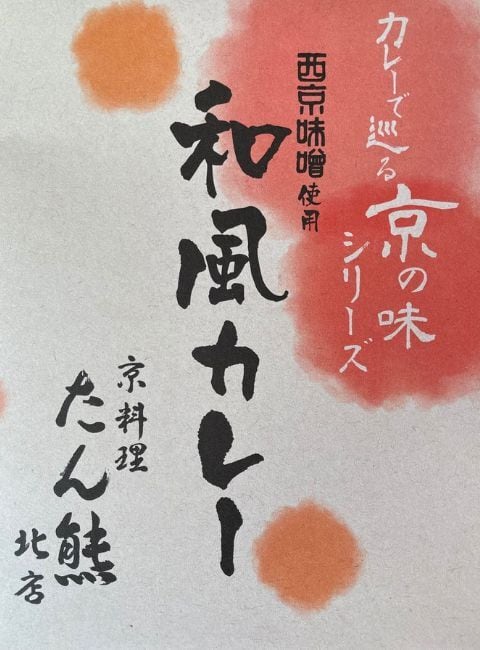 カレーで巡る
京の味
シリーズ
西京味噌使用
和風カレー
京料理
たん熊
北店